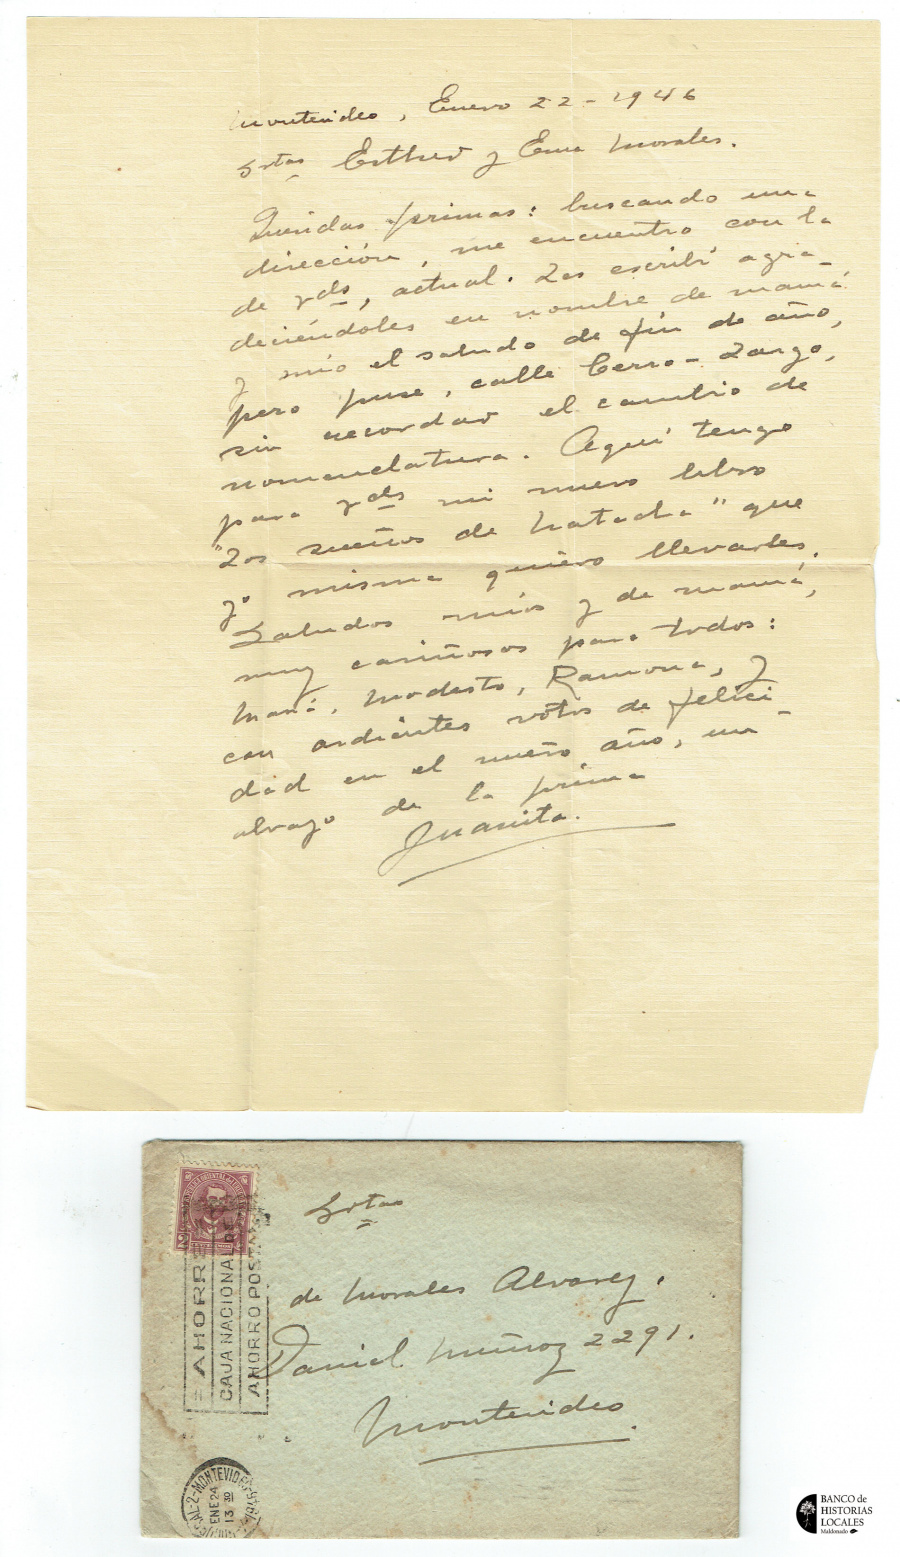 Montevideo, Enero 22-1946
Srtas Esther y Ema Morales.
Queridas primas: buscando una
dirección, me encuentro con la
de Vds, actual. Les escribí agra-
deciéndoles en nombre de mamá
y mío el saludo de fin de año,
pero puse, calle Cerro-Largo,
sin recordar el cambio de
nomenclatura. Aquí tengo
para Vds mi nuevo libro
"Los sueños de Natacha" que
yo misma quiero llevarles.
Saludos míos y de mamá,
muy cariñosos para todos:
Modesto, Ramona, y
con ardientes votos de felici
dad en el nuevo año, un
abrazo de la prima
Juanita.
Srtas
de Morales Alvarez.
Daniel Muñoz 2291.
Montevideo
AHORRE
CAJA NACIONAL DE
AHORRO POSTAL
2-MONTEVIDEO
ENE 24
13 30
BANCO de
HISTORIAS
LOCALES
Maldonado